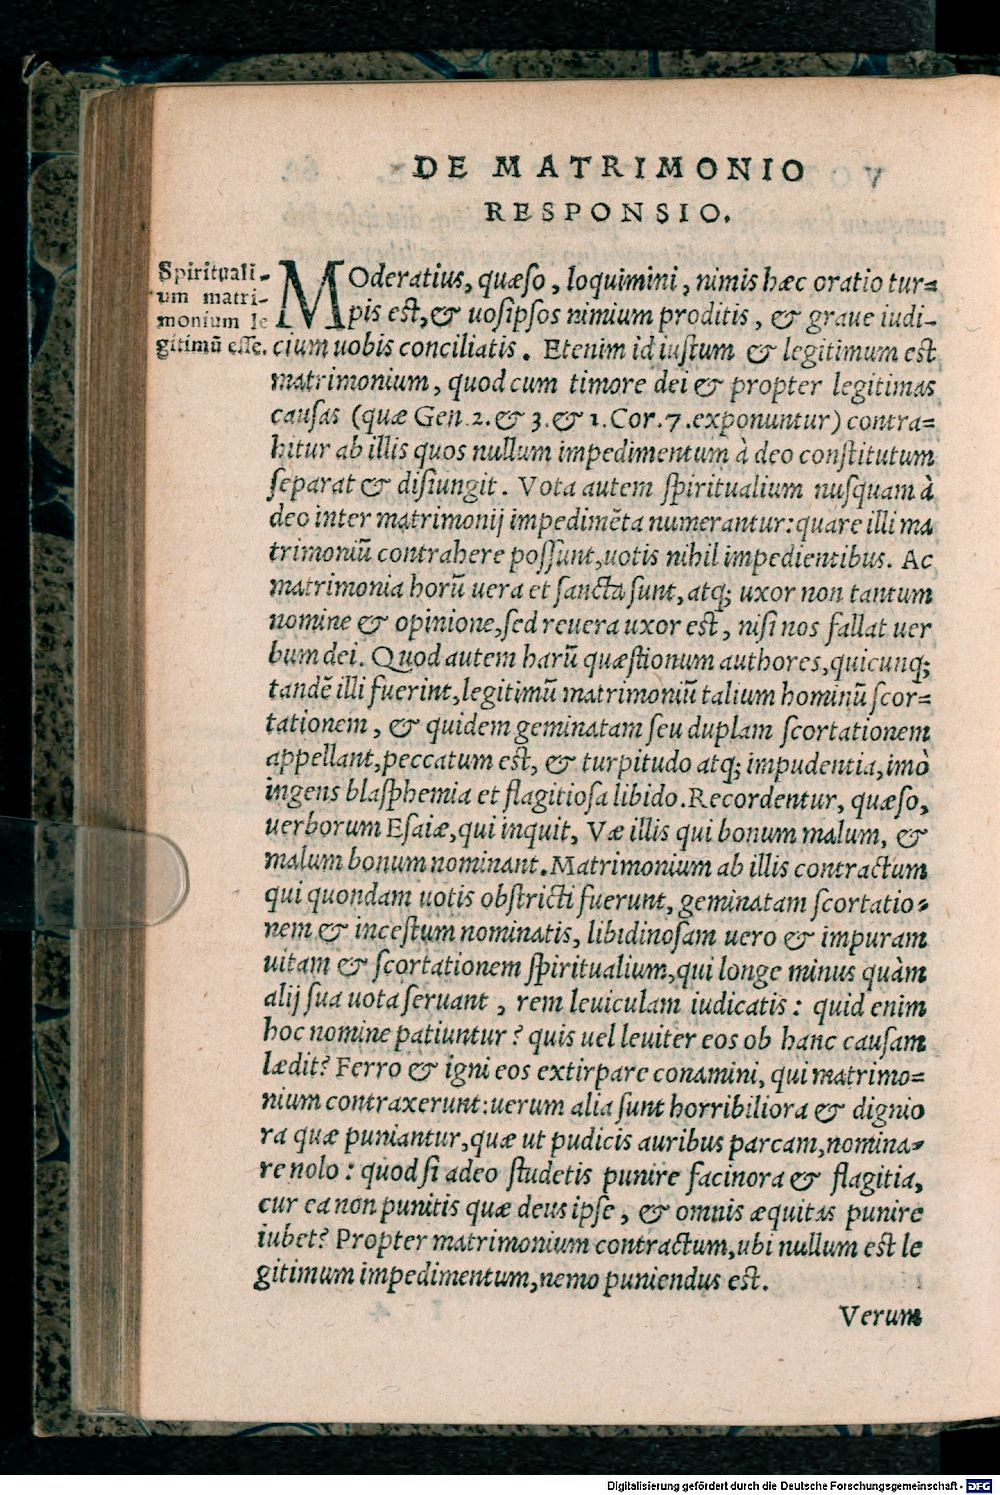 DE MATRIMONIO
RESPONSIO.
Spirituali-
um matri-
monium le
gitimũ esse.
MOderatius, quæso, loquimini, nimis hæc oratio tur=
pis est, & uosipsos nimium proditis, & graue iudi-
cium uobis conciliatis. Etenim id iustum & legitimum est
matrimonium, quod cum timore dei & propter legitimas
causas (quæ Gen. 2. & 3. & 1. Cor. 7. exponuntur) contra=
hitur ab illis quos nullum impedimentum à deo constitutum
separat & disiungit. Vota autem spiritualium nusquam à
deo inter matrimonij impedimẽta numerantur: quare illi ma
trimoniũ contrahere possunt, uotis nihil impedientibus. Ac
matrimonia horũ uera et sancta sunt, atq; uxor non tantum
nomine & opinione, sed reuera uxor est, nisi nos fallat uer
bum dei. Quod autem harũ quæstionum authores, quicunq;
tandẽ illi fuerint, legitimũ matrimoniũ talium hominũ scor=
tationem, & quidem geminatam seu duplam scortationem
appellant, peccatum est, & turpitudo atq; impudentia, imò
ingens blasphemia et flagitiosa libido. Recordentur, quæso,
uerborum Esaiæ, qui inquit, Væ illis qui bonum malum, &
malum bonum nominant. Matrimonium ab illis contractum
qui quondam uotis obstricti fuerunt, geminatam scortatio=
nem & incestum nominatis, libidinosam uero & impuram
uitam & scortationem spiritualium, qui longe minus quàm
alij sua uota seruant, rem leuiculam iudicatis: quid enim
hoc nomine patiuntur? quis uel leuiter eos ob hanc causam
lædit? Ferro & igni eos extirpare conamini, qui matrimo=
nium contraxerunt: uerum alia sunt horribiliora & dignio
ra quæ puniantur, quæ ut pudicis auribus parcam, nomina=
re nolo: quod si adeo studetis punire facinora & flagitia,
cur ea non punitis quæ deus ipse, & omnis æquitas punire
iubet? Propter matrimonium contractum, ubi nullum est le
gitimum impedimentum, nemo puniendus est.
Verum
Digitalisierung gefördert durch die Deutsche Forschungsgemeinschaft - DFG